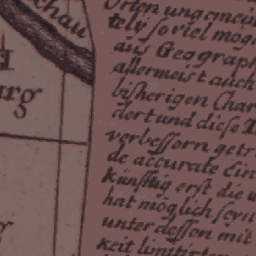 chau
urg
Orten ungemein
tely so viel mögl
aus Geograph
allermeist auch
bisherigen Char
dert und diese
verbessern getr
de accurate Ein
künfftig erst die
hat möglich seyn
unter dessen mit
keit limitirten